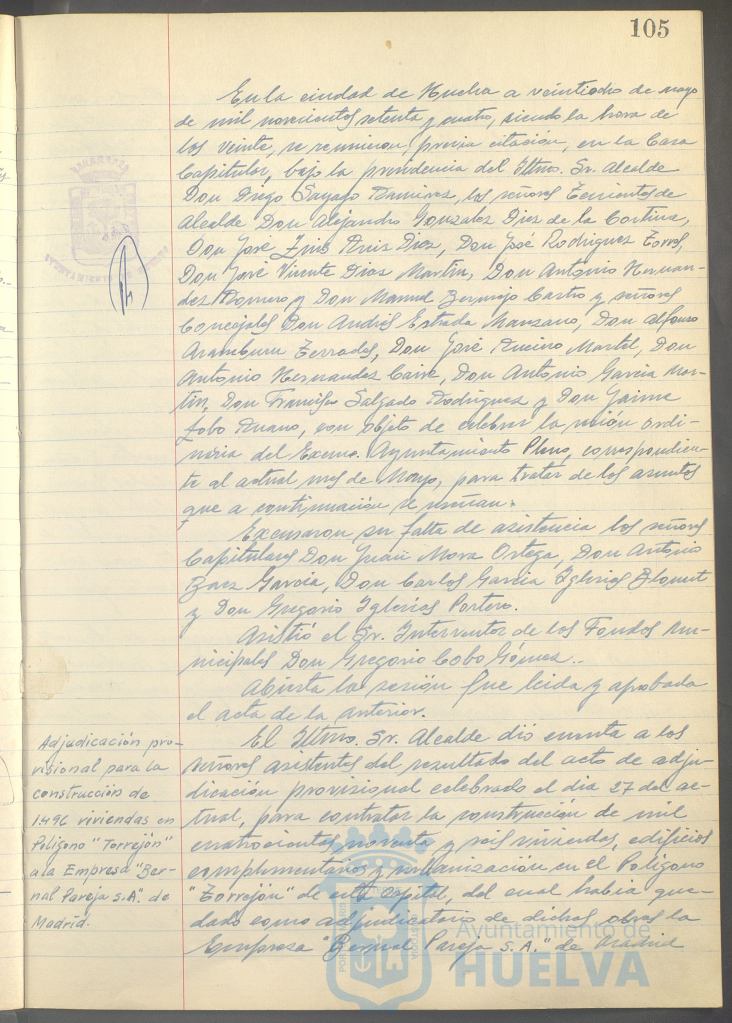 105
En la ciudad de Huelva a veintiocho de mayo
de mil novecientos setenta y cuatro, siendo la hora de
las veinte, se reunieron, previa citación, en la Casa
Capitular, bajo la presidencia del Iltmo. Sr. Alcalde
Don Diego Sayago Ramirez, los señores Tenientes de
Alcalde Don Alejandro Gonzalez Diez de la Cortina,
Don José Ruiz Diaz, Don José Rodriguez Torres,
Don José Vicente Dios Martin, Don Antonio Hernan-
dez Romero y Don Manuel Bermejo Castro y señores
Concejales Don Andrés Estrada Manzano, Don Alfonso
Aramburu Terrades, Don José Martel, Don
Antonio Hernandez Don Antonio Garcia Mar-
tin, Don Francisco Salgado Rodriguez y Don Jaime
con objeto de celebrar la sesión ordi-
naria del Excmo. Ayuntamiento Pleno, correspondien-
te al actual mes de Mayo, para tratar de los asuntos
que a continuación se reseñan.
Excusaron su falta de asistencia los señores
Capitulares Don Juan Mora Ortega, Don Antonio
Baez Garcia, Don Carlos Garcia Iglesias
y Don Gregorio Iglesias Portero.
Asistió el Sr. Interventor de los Fondos mu-
nicipales Don Gregorio Cobo Gómez.
Abierta la sesión fue leida y aprobada
el acta de la anterior.
Adjudicación pro-
visional para la
construcción de
1.496 viviendas en
Poligono "Torrejón"
a la Empresa "Ber-
nal Pareja S.A." de
Madrid.
El Iltmo. Sr. Alcalde dió cuenta a los
señores asistentes del resultado del acto de adju-
dicación provisional celebrado el dia 27 del ac-
tual, para contratar la construcción de mil
cuatrocientas noventa y seis viviendas, edificios
complementarios y urbanización en el Poligono
"Torrejón" de esta capital, del cual habia que-
dado como adjudicatario de dichas obras la
Empresa Bernal Pareja S.A." de Madrid
Ayuntamiento de
HUELVA